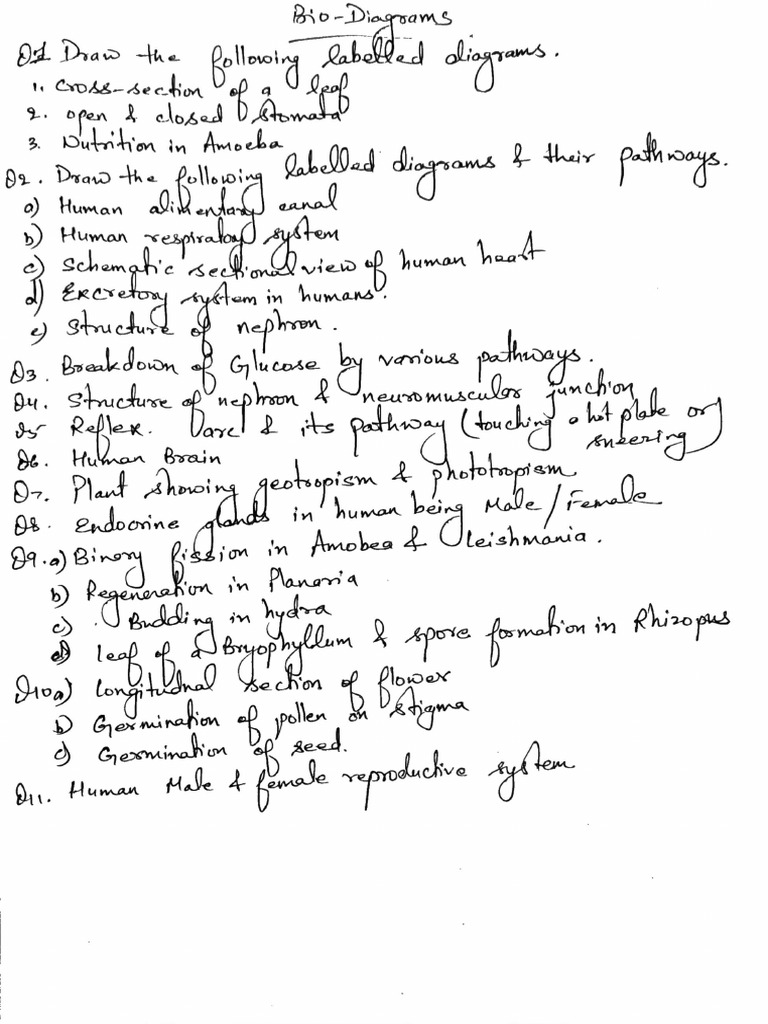 Bio-Diagrams
Q1 Draw the following labelled diagrams.
1. cross-section of a leaf
2. open & closed stomata
3. Nutrition in Amoeba
Q2. Draw the following labelled diagrams & their pathways.
a) Human alimentary canal
b) Human respiratory system
c) Schematic sectional view of human heart
d) Excretory system in humans.
e) Structure of nephron.
Q3. Breakdown of Glucose by various pathways.
Q4. Structure of nephron & neuromuscular junction
Q5 Reflex arc & its pathway (touching a hot plate or sneezing)
Q6. Human Brain
Q7. Plant showing geotropism & phototropism
Q8. Endocrine glands in human being Male/Female
Q9. a) Binary fission in Amobea & leishmania.
b) Regeneration in Planaria
c) Budding in hydra
d) leaf of a Bryophyllum & spore formation in Rhizopus
Q10 a) longitudnal section of flower
b) Germination of pollen on stigma
c) Germination of seed.
Q11. Human Male & female reproductive system